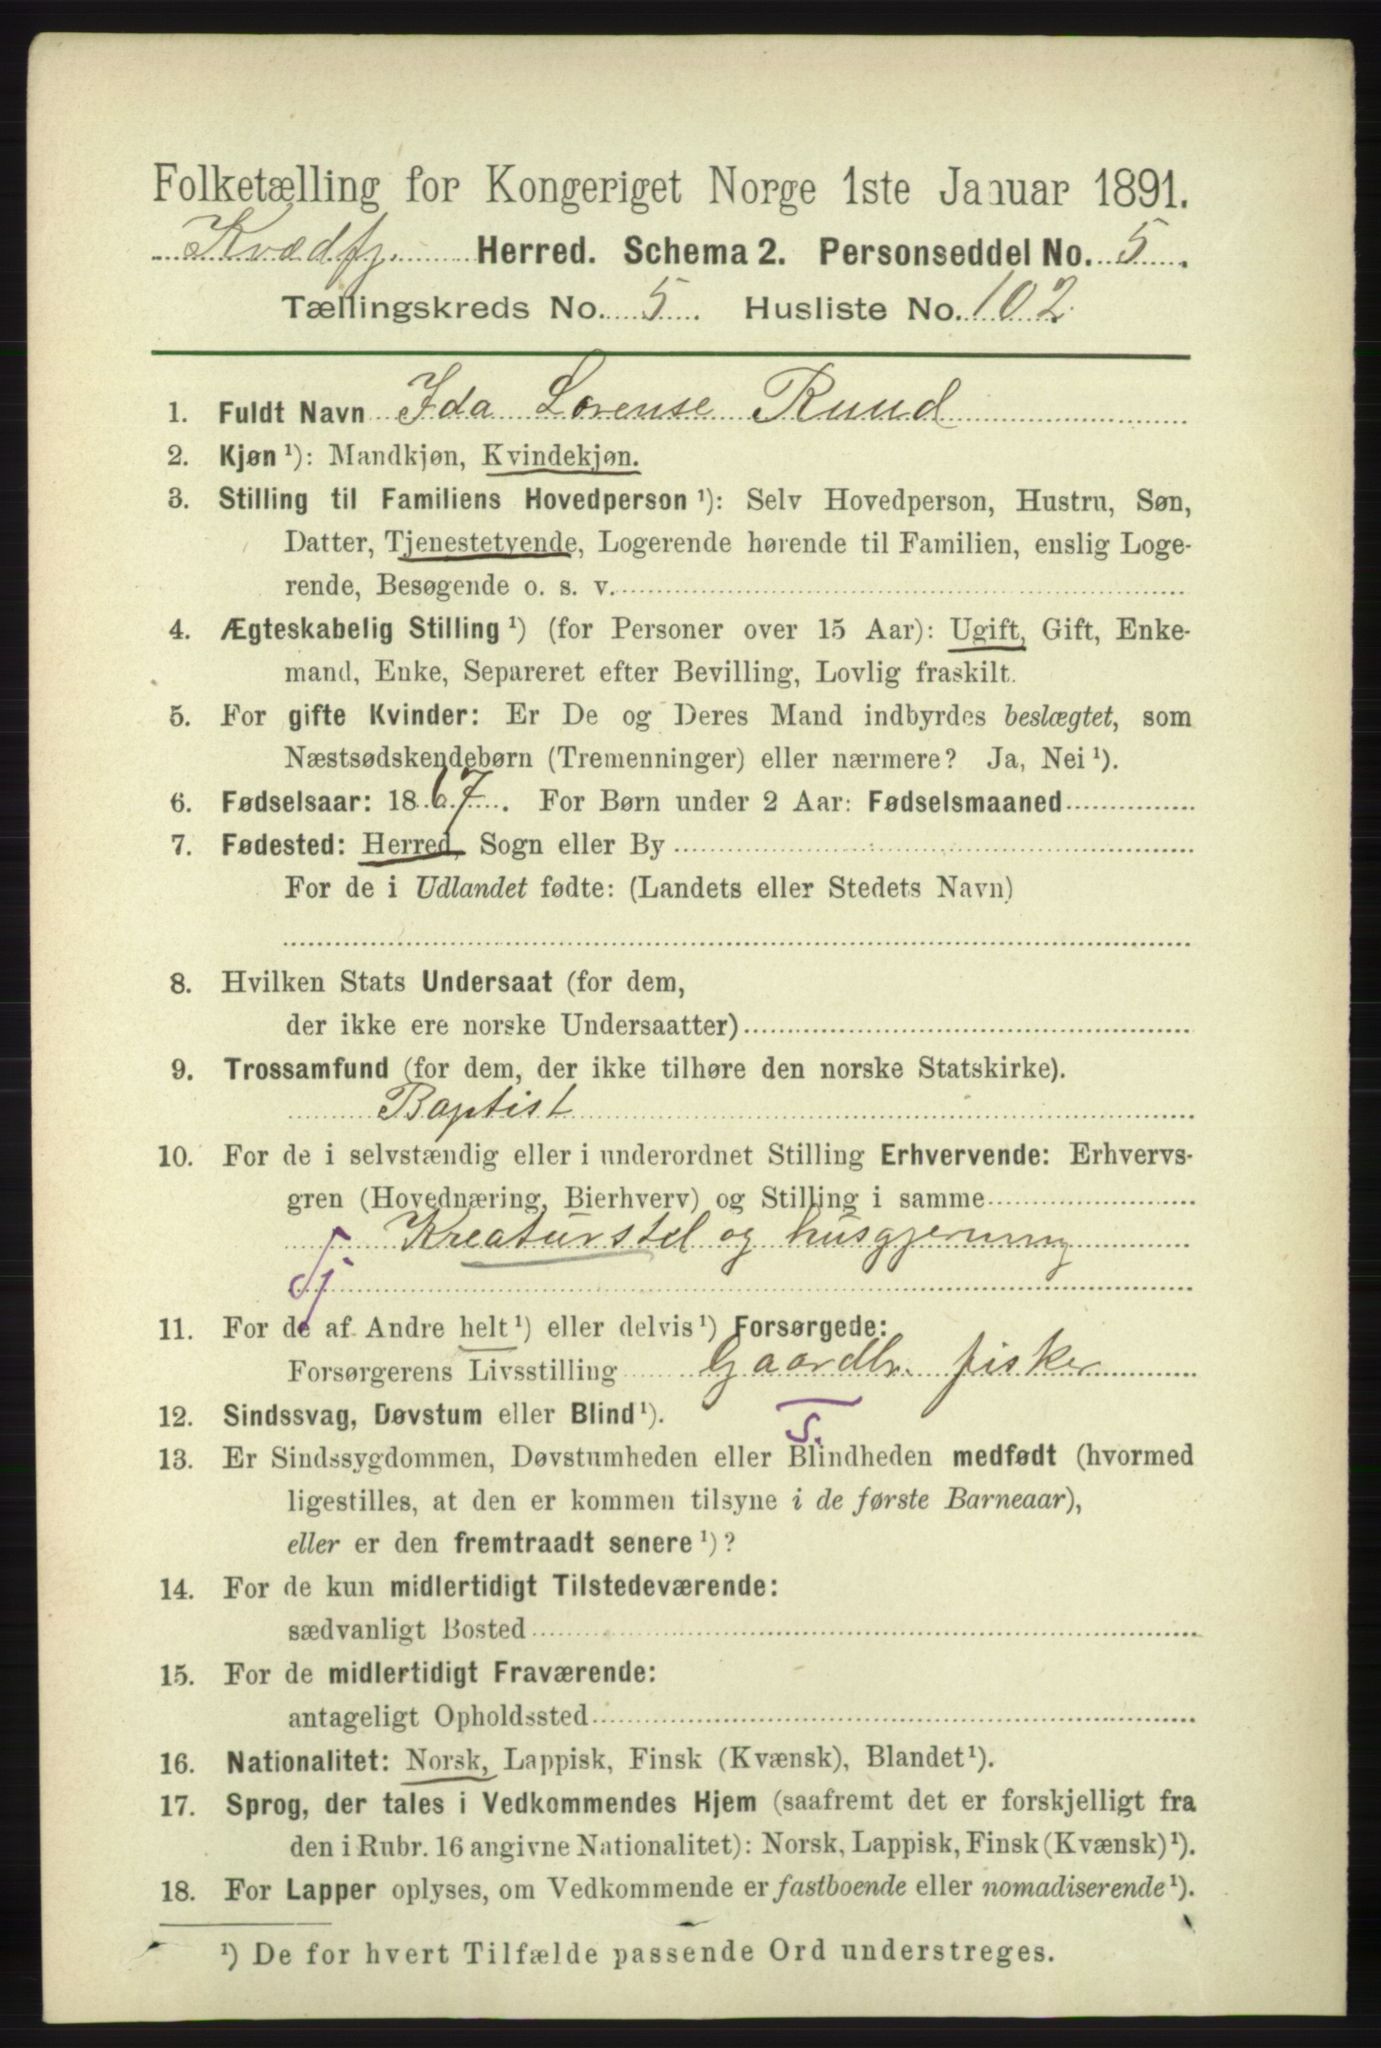 Folketælling for Kongeriget Norge 1ste Januar 1891.
Kvædfj. Herred. Schema 2. Personseddel No. 5.
Tællingskreds No. 5. Husliste No. 102
1. Fuldt Navn Ida Lorense Ruud
2. Kjøn ¹): Mandkjøn, Kvindekjøn.
3. Stilling til Familiens Hovedperson ¹): Selv Hovedperson, Hustru, Søn,
Datter, Tjenestetyende, Logerende hørende til Familien, enslig Loge-
rende, Besøgende o. s. v.
4. Ægteskabelig Stilling ¹) (for Personer over 15 Aar): Ugift, Gift, Enke-
mand, Enke, Separeret efter Bevilling, Lovlig fraskilt.
5. For gifte Kvinder: Er De og Deres Mand indbyrdes beslægtet, som
Næstsødskendebørn (Tremenninger) eller nærmere? Ja, Nei ¹).
6. Fødselsaar: 1867. For Børn under 2 Aar: Fødselsmaaned
7. Fødested: Herred, Sogn eller By
For de i Udlandet fødte: (Landets eller Stedets Navn)
8. Hvilken Stats Undersaat (for dem,
der ikke ere norske Undersaatter)
9. Trossamfund (for dem, der ikke tilhøre den norske Statskirke).
Baptist
10. For de i selvstændig eller i underordnet Stilling Erhvervende: Erhvervs-
gren (Hovednæring, Bierhverv) og Stilling i samme
Kreaturstel og husgjerning
11. For de af Andre helt ¹) eller delvis ¹) Forsørgede:
Forsørgerens Livsstilling Gaardbr. fisker
12. Sindssvag, Døvstum eller Blind ¹).
S.
13. Er Sindssygdommen, Døvstumheden eller Blindheden medfødt (hvormed
ligestilles, at den er kommen tilsyne i de første Barneaar),
eller er den fremtraadt senere ¹)?
14. For de kun midlertidigt Tilstedeværende:
sædvanligt Bosted
15. For de midlertidigt Fraværende:
antageligt Opholdssted
16. Nationalitet: Norsk, Lappisk, Finsk (Kvænsk), Blandet ¹).
17. Sprog, der tales i Vedkommendes Hjem (saafremt det er forskjelligt fra
den i Rubr. 16 angivne Nationalitet): Norsk, Lappisk, Finsk (Kvænsk) ¹).
18. For Lapper oplyses, om Vedkommende er fastboende eller nomadiserende ¹).
¹) De for hvert Tilfælde passende Ord understreges.